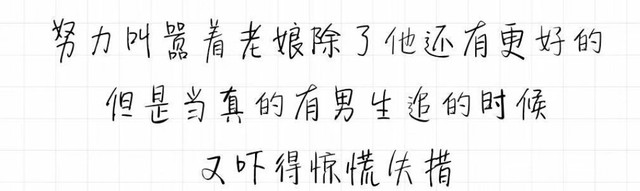 努力叫嚣着老娘除了他还有更好的
但是当真的有男生追的时候
又吓得惊慌失措